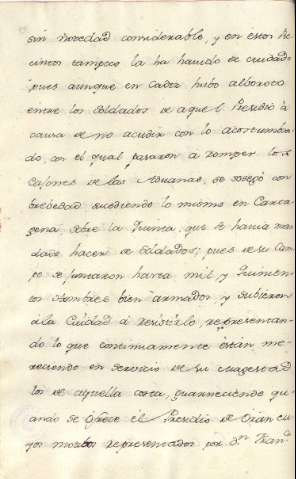 sin novedad considerable, y en estos he
cintos tampoco la ha havido de cuidado
pues aunque en Cadiz hubo alboroto
entre los Soldados de aquel Presidio à
causa de no acudir con lo acostumbra
do, con el qual pasaron à romper los
Cajones de las Aduanas, se sosegó con
brebedad sucediendo lo mismo en Carta
gena, sobre la Junta, que se havia man
dado hacer de Soldados; pues de su Cam
po se juntaron harta mil y
tos hombres bien armados y subieron
à la Ciudad á resistirlo, representan
do lo que continuamente están me
reciendo en servicio de su Magestad
los de aquella costa, guarneciendo qu
ando se ofrece el Presidio de Oran cu
yos motibos representados por Dn. Fran